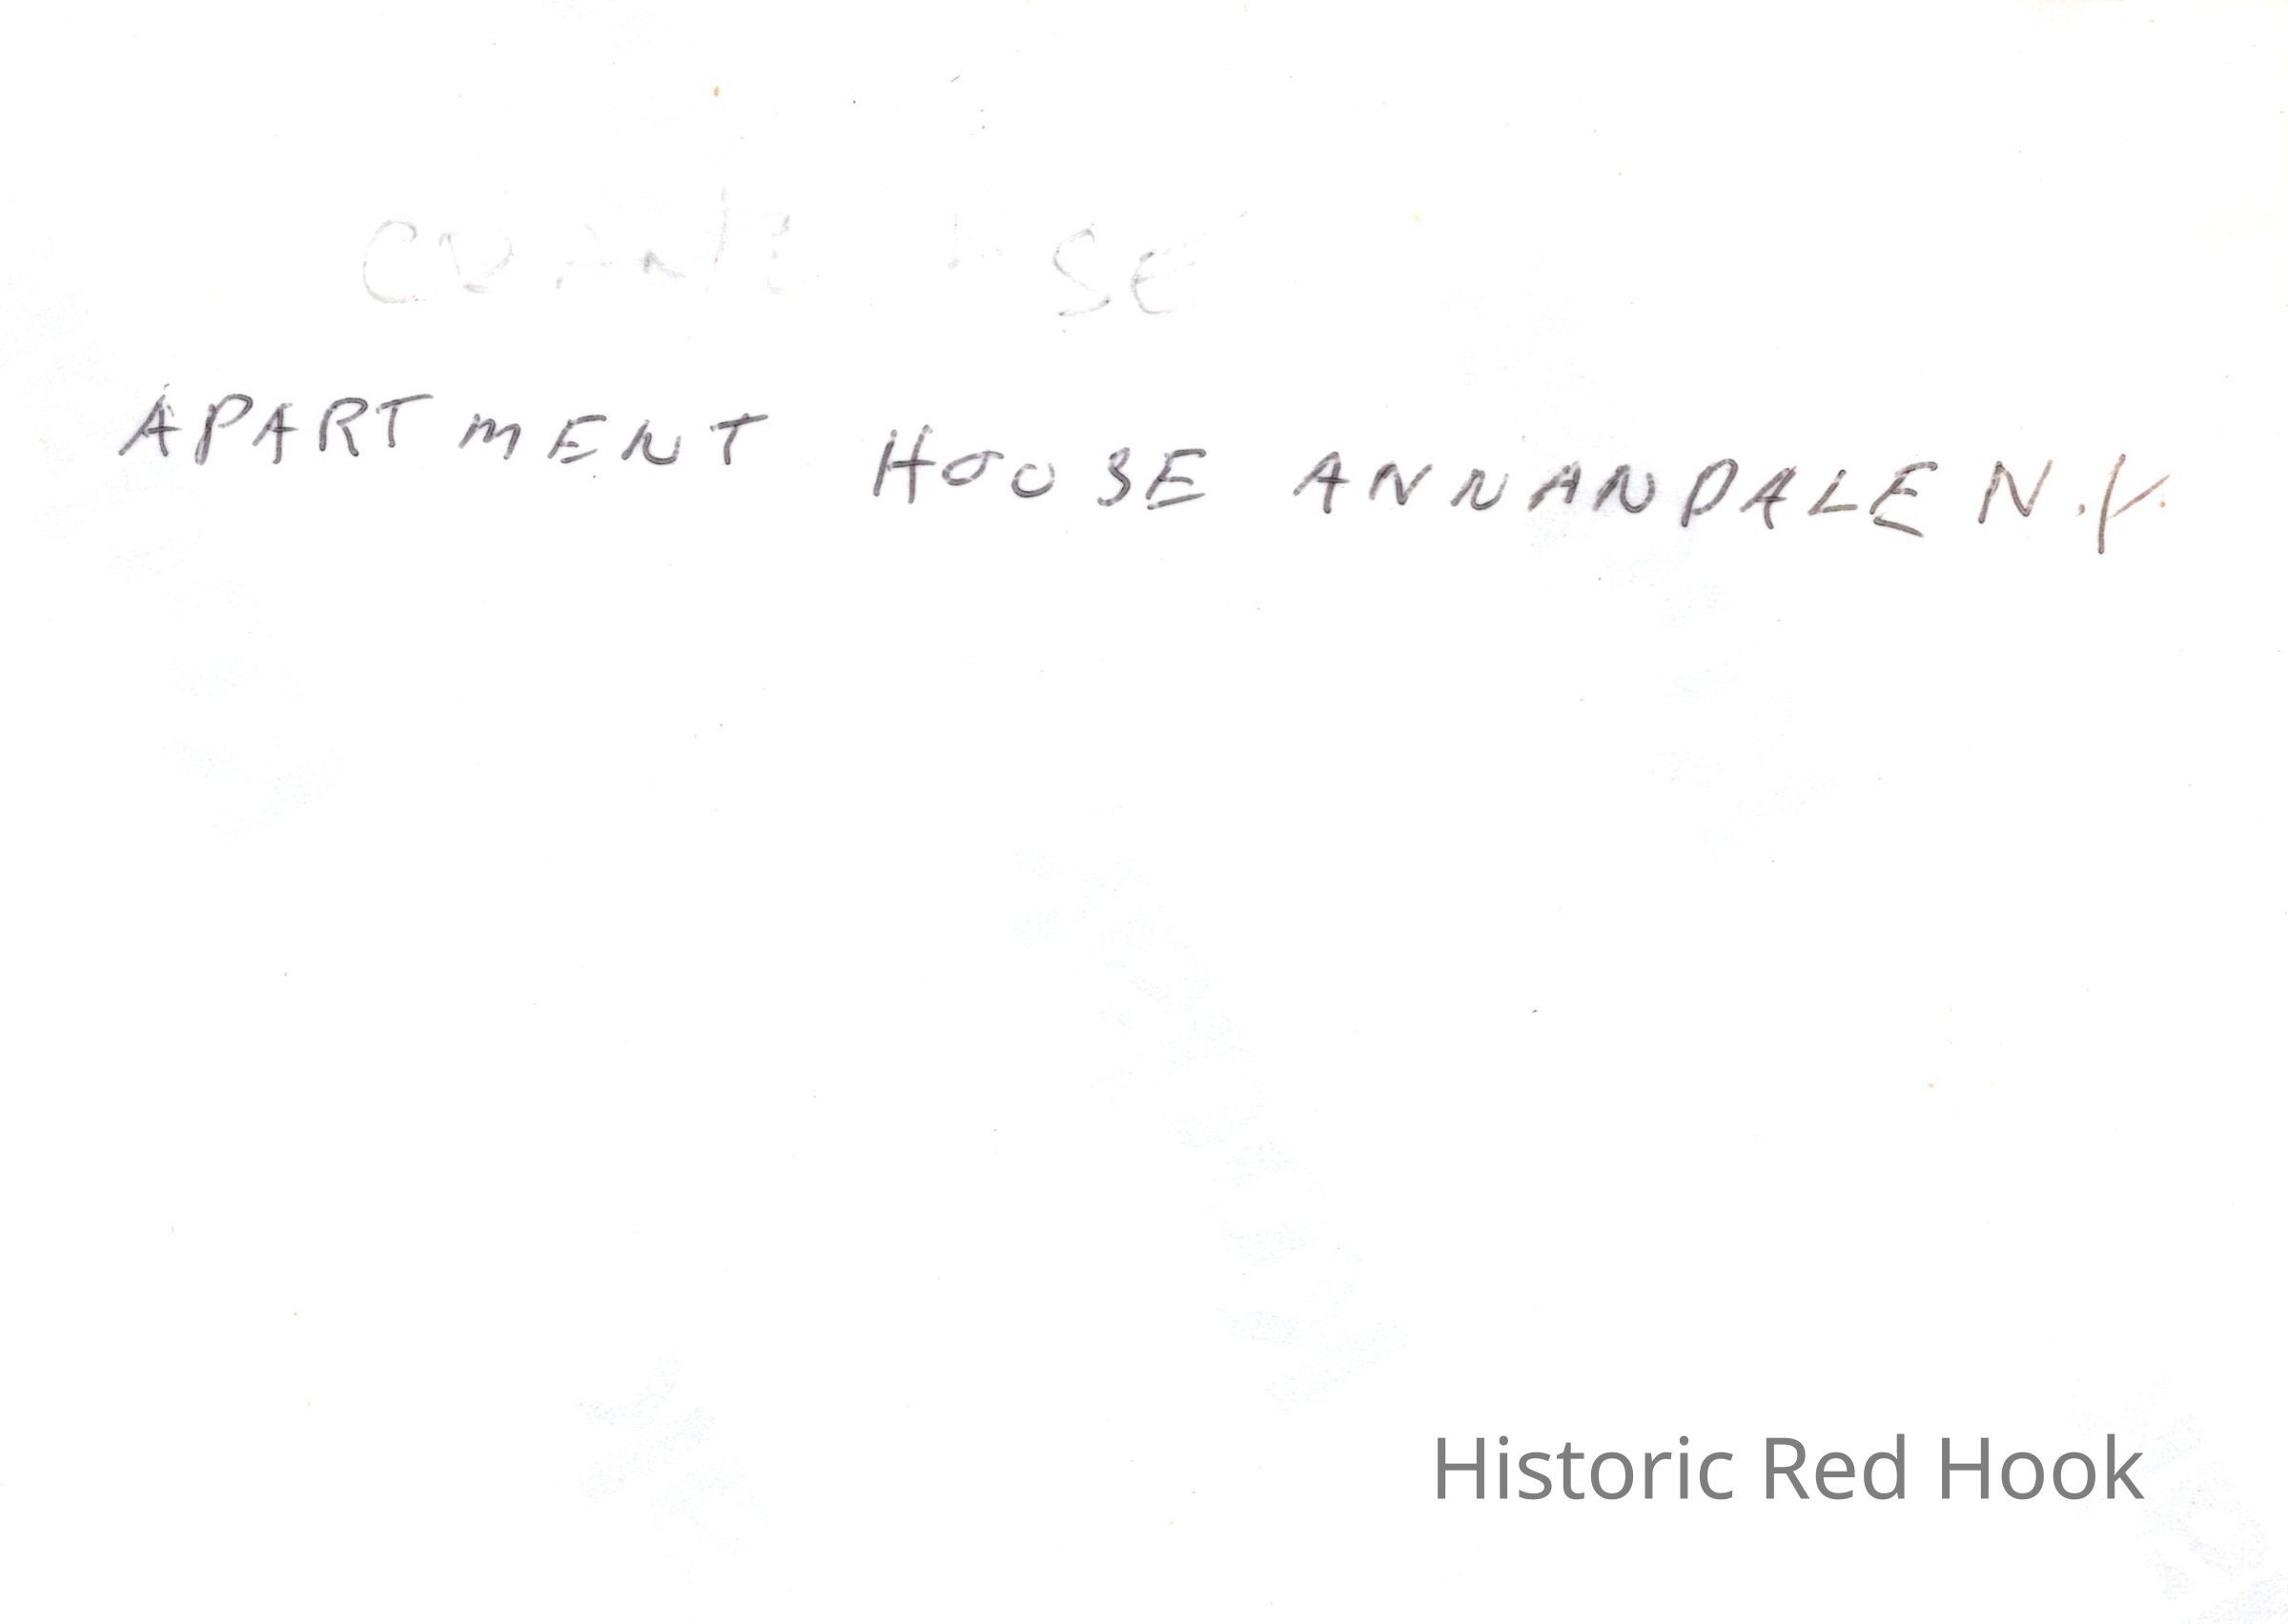 APARTMENT HOUSE ANNANDALE N.Y.
Historic Red Hook